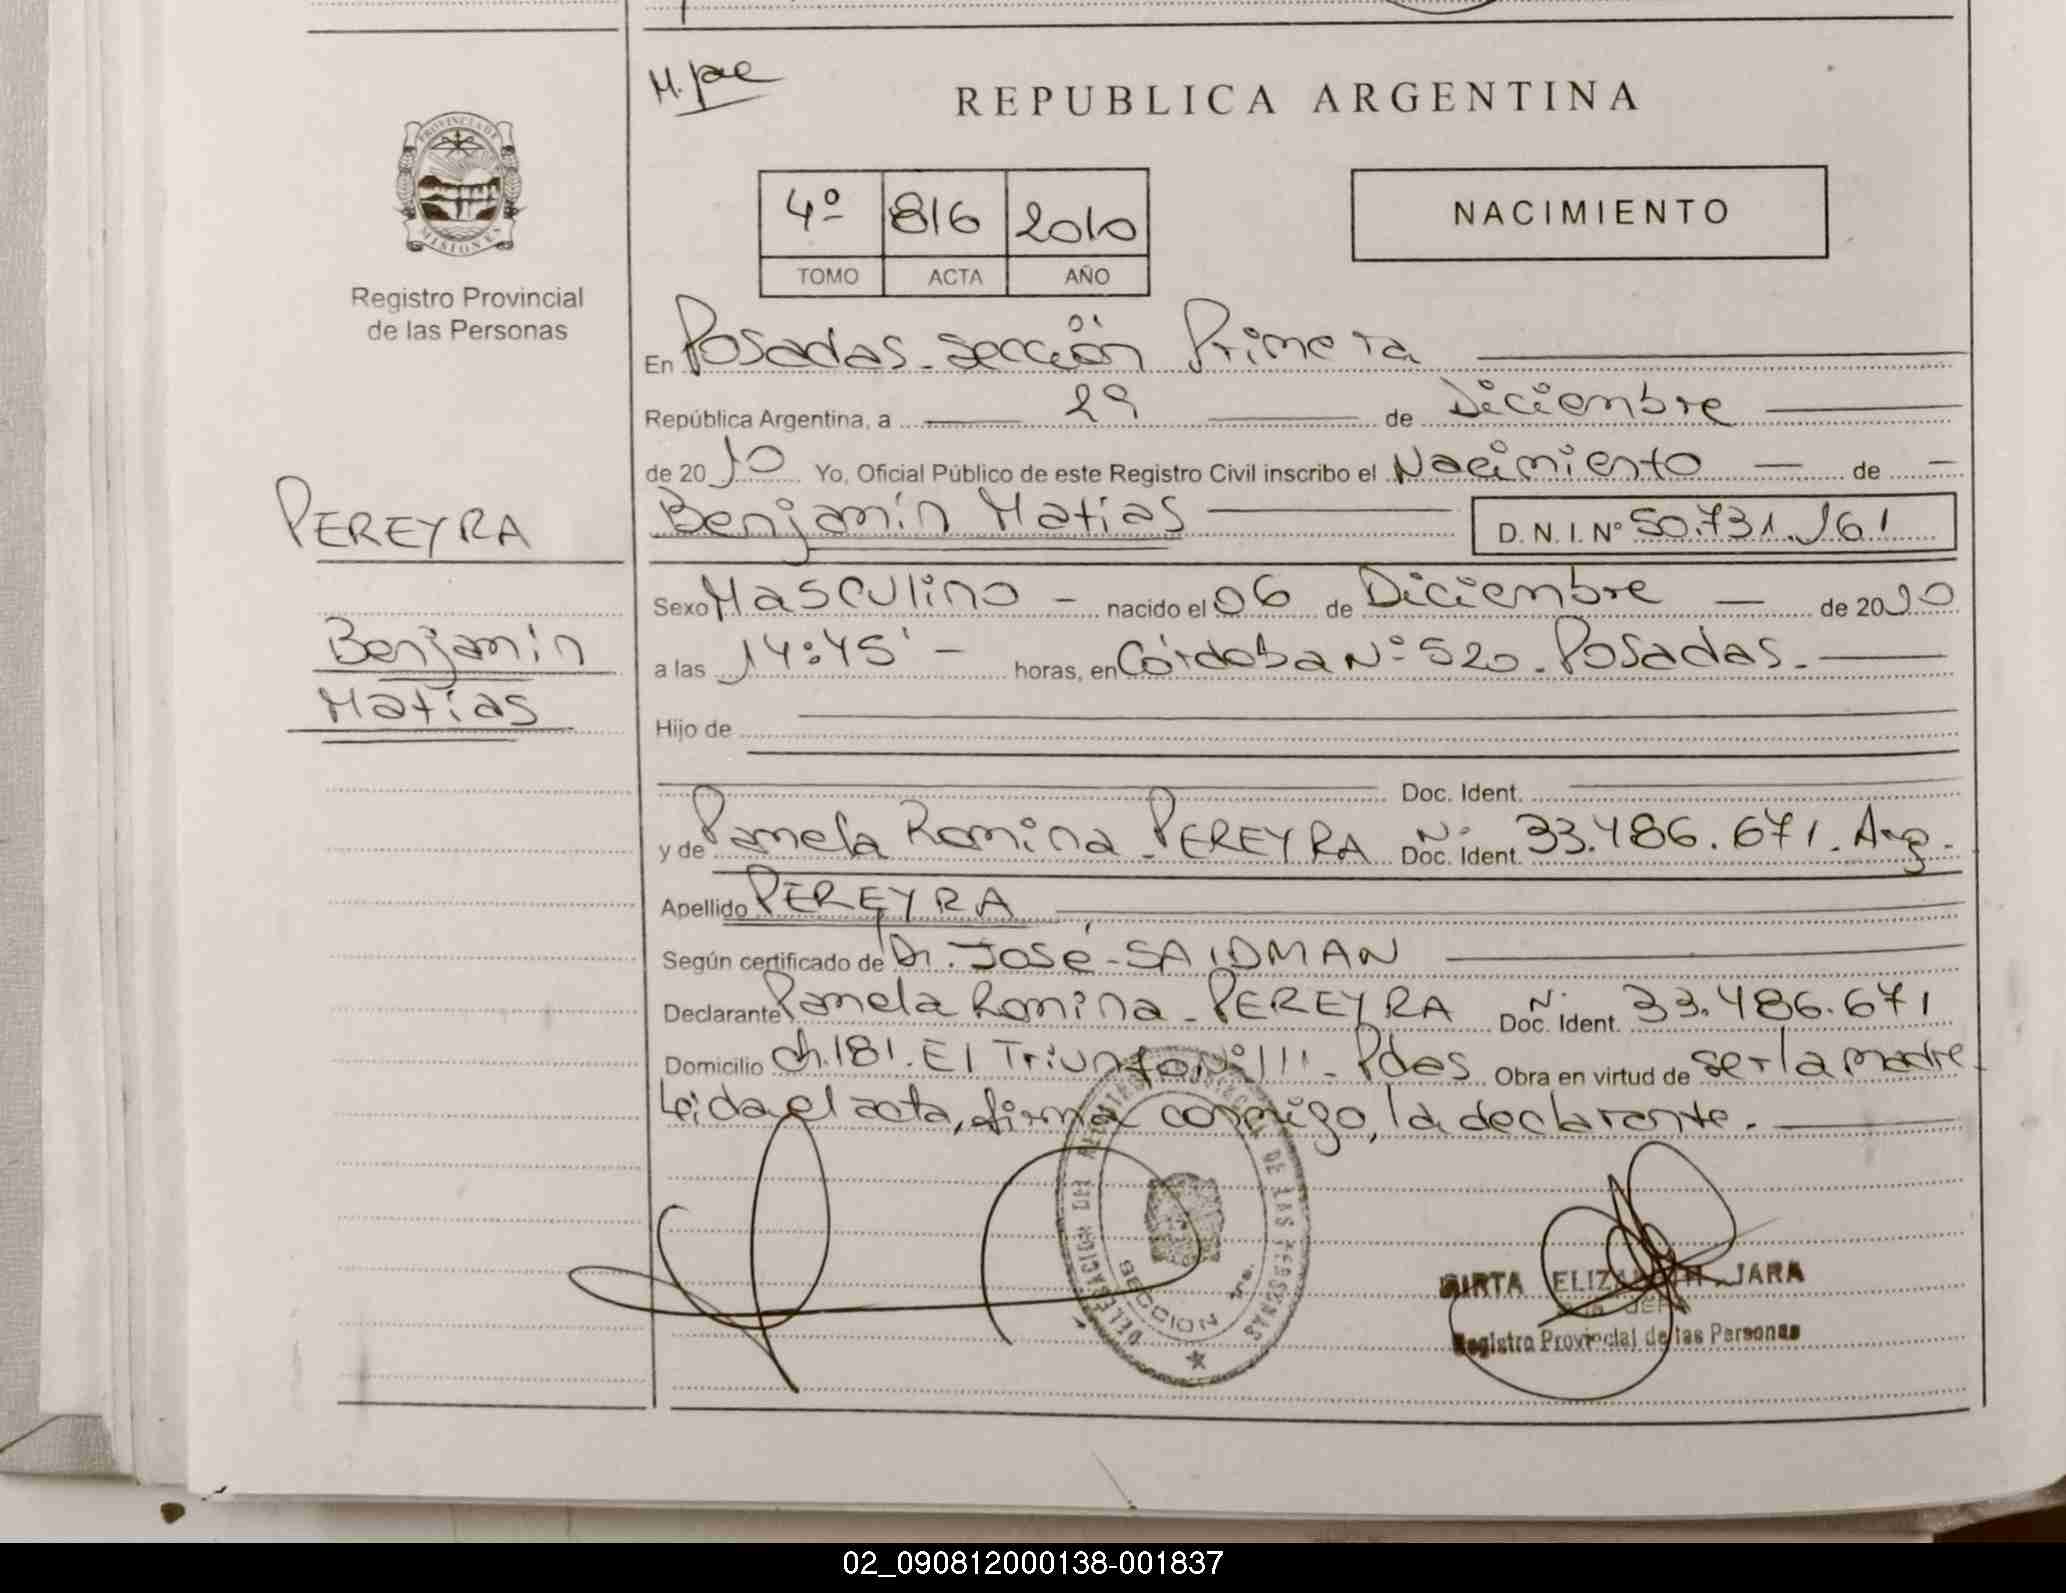 REPUBLICA ARGENTINA
PROVINCIA DE
MISIONES
Registro Provincial
de las Personas
4º 816 2010
TOMO ACTA AÑO
NACIMIENTO
En Posadas - sección Primera
República Argentina, a 29 de Diciembre
de 2010 Yo, Oficial Público de este Registro Civil inscribo el Nacimiento — de —
PEREYRA
Benjamín Matías D. N. I. Nº 50.731.161
Sexo Masculino - nacido el 06 de Diciembre — de 2010
Benjamín
a las 14:45' - horas, en Córdoba Nº 520 - Posadas.-
Matías
Hijo de
Doc. Ident.
y de Pamela Romina - PEREYRA Nº Doc. Ident. 33.486.671. Arg.-
Apellido PEREYRA
Según certificado de Dr. José - SAIDMAN
Declarante Pamela Romina - PEREYRA Nº Doc. Ident. 33.486.671
Domicilio Ch.181. El Triunfo Pdas Obra en virtud de ser la madre
Leida el acta, firma conmigo, la declarante.
DE LAS PERSONAS
SECCION 1ra.
MIRTA ELIZABETH JARA
JEFA
Registro Provincial de las Personas
02_090812000138-001837